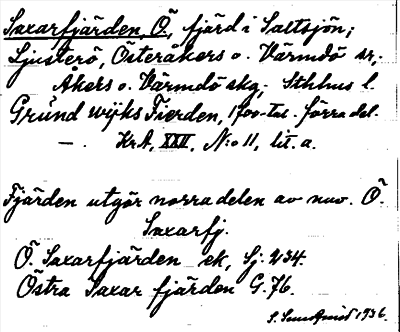 Saxarfjärden Ö., fjärd i Saltsjön;
Ljusterö, Österåkers o. Värmdö sr,
Åkers o. Värmdö skg, Sthlms l.
Gründ wijks Fierden, 1700-tal. förra del.
— KrA, XXII, N:o 11, lit. a.
Fjärden utgör norra delen av nuv. Ö.
Saxarfj.
Ö. Saxarfjärden ek, Sj. 234.
Östra Saxar fjärden G. 76.
1936.